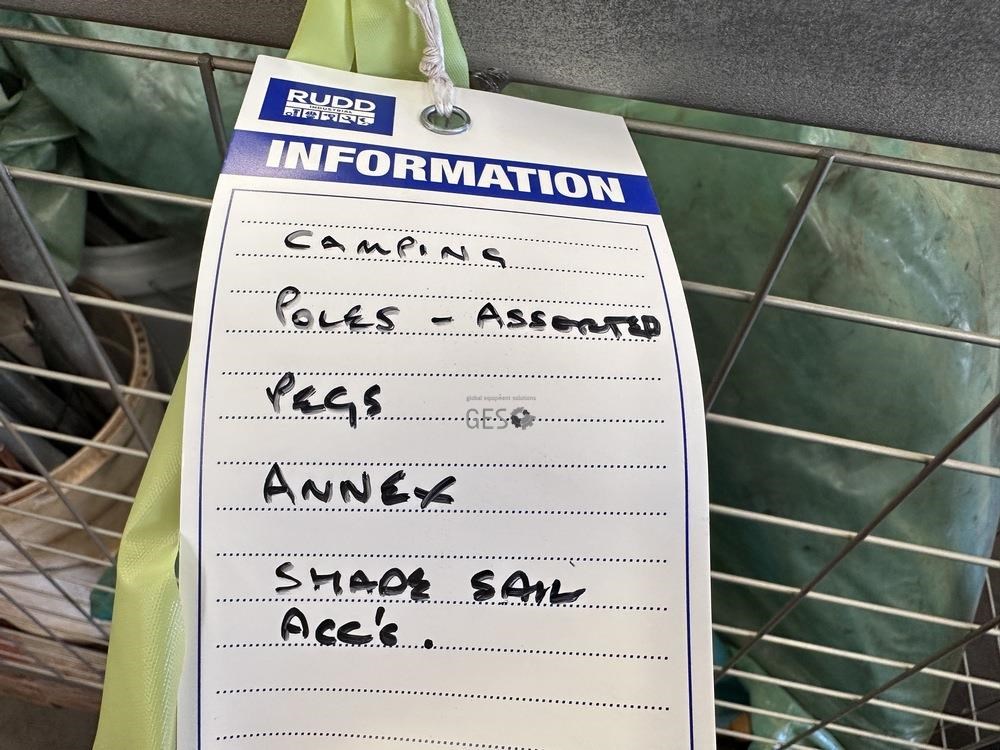 RUDD
INDUSTRIAL
INFORMATION
CAMPING
POLES - ASSORTED
PEGS
global equipment solutions
GES
ANNEX
SHADE SAIL
ACC'S.